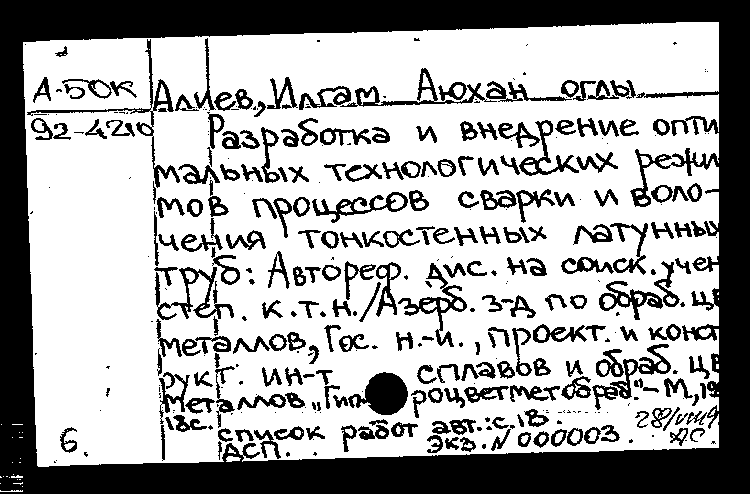 А-БОК
Алиев, Илгам Аюхан оглы
92-4210
Разработка и внедрение опти
мальных технологических режи
мов процессов сварки и воло-
чения тонкостенных латунных
труб: Автореф. дис. на соиск. учен
степ. к.т.н. / Азерб. з-д по обраб. цв
металлов, Гос. н.-и., проект. и конст
рукт. ин-т сплавов и обраб. цв
металлов "Гип роцветметобраб." - М., 19
18с.
список работ авт.: с.18.
АСП. Экз. N 000003.
АС
6.